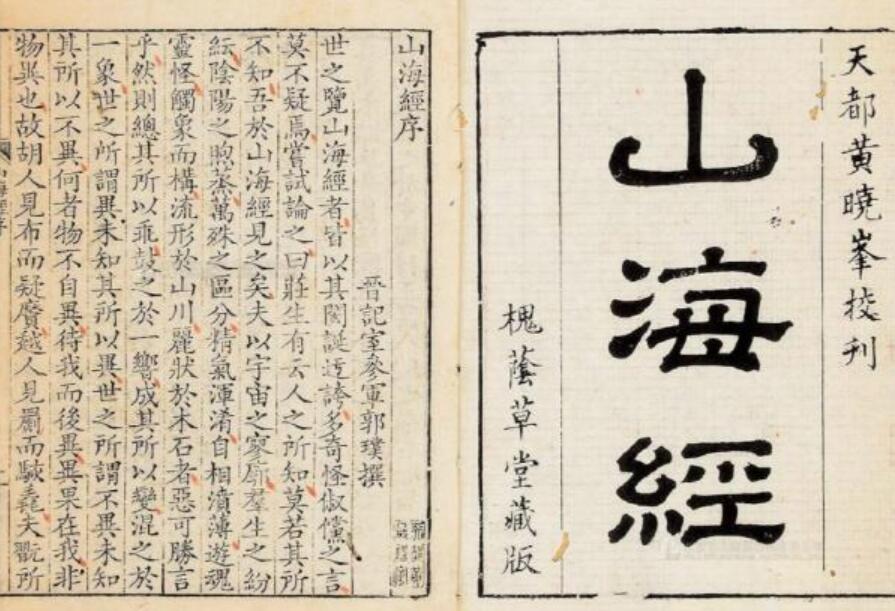 天都黄曉峯挍刋
山海經
槐蔭草堂藏版
山海經序
晉記室參軍郭璞撰
世之覽山海經者皆以其閎誕迃誇多奇怪俶儻之言
莫不疑焉嘗試論之曰莊生有云人之所知莫若其所
不知吾於山海經見之矣夫以宇宙之寥廓羣生之紛
紜陰陽之煦蒸萬殊之區分精氣渾淆自相濆薄遊魂
靈怪觸象而構流形於山川麗狀於木石者惡可勝言
乎然則總其所以乖鼓之於一響成其所以變混之於
一象世之所謂異未知其所以異世之所謂不異未知
其所以不異何者物不自異待我而後異異果在我非
物異也故胡人見布而疑黂越人見罽而駭毳夫翫所
山海經序